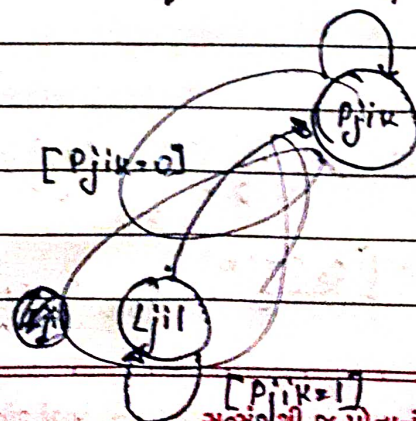 Pjik
[Pjik=0]
Ljil
[Pjik=1]